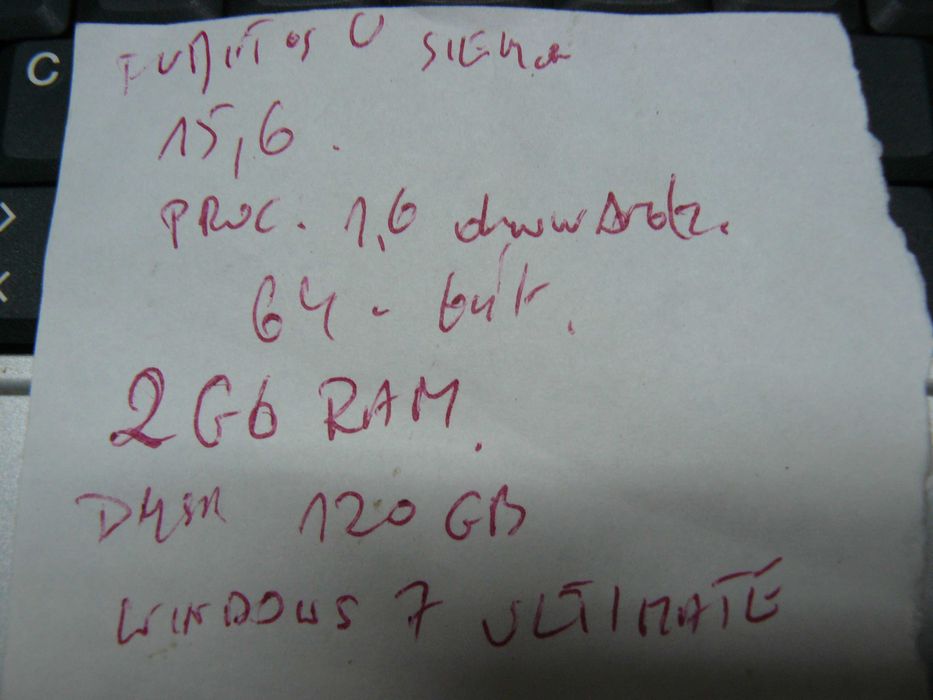 C
FUJITSU SIEMEN
15,6.
PROC. 1,6 dwurdz.
64 - bit.
2 Gb RAM.
DYSK 120 GB
WINDOWS 7 ULTIMATE